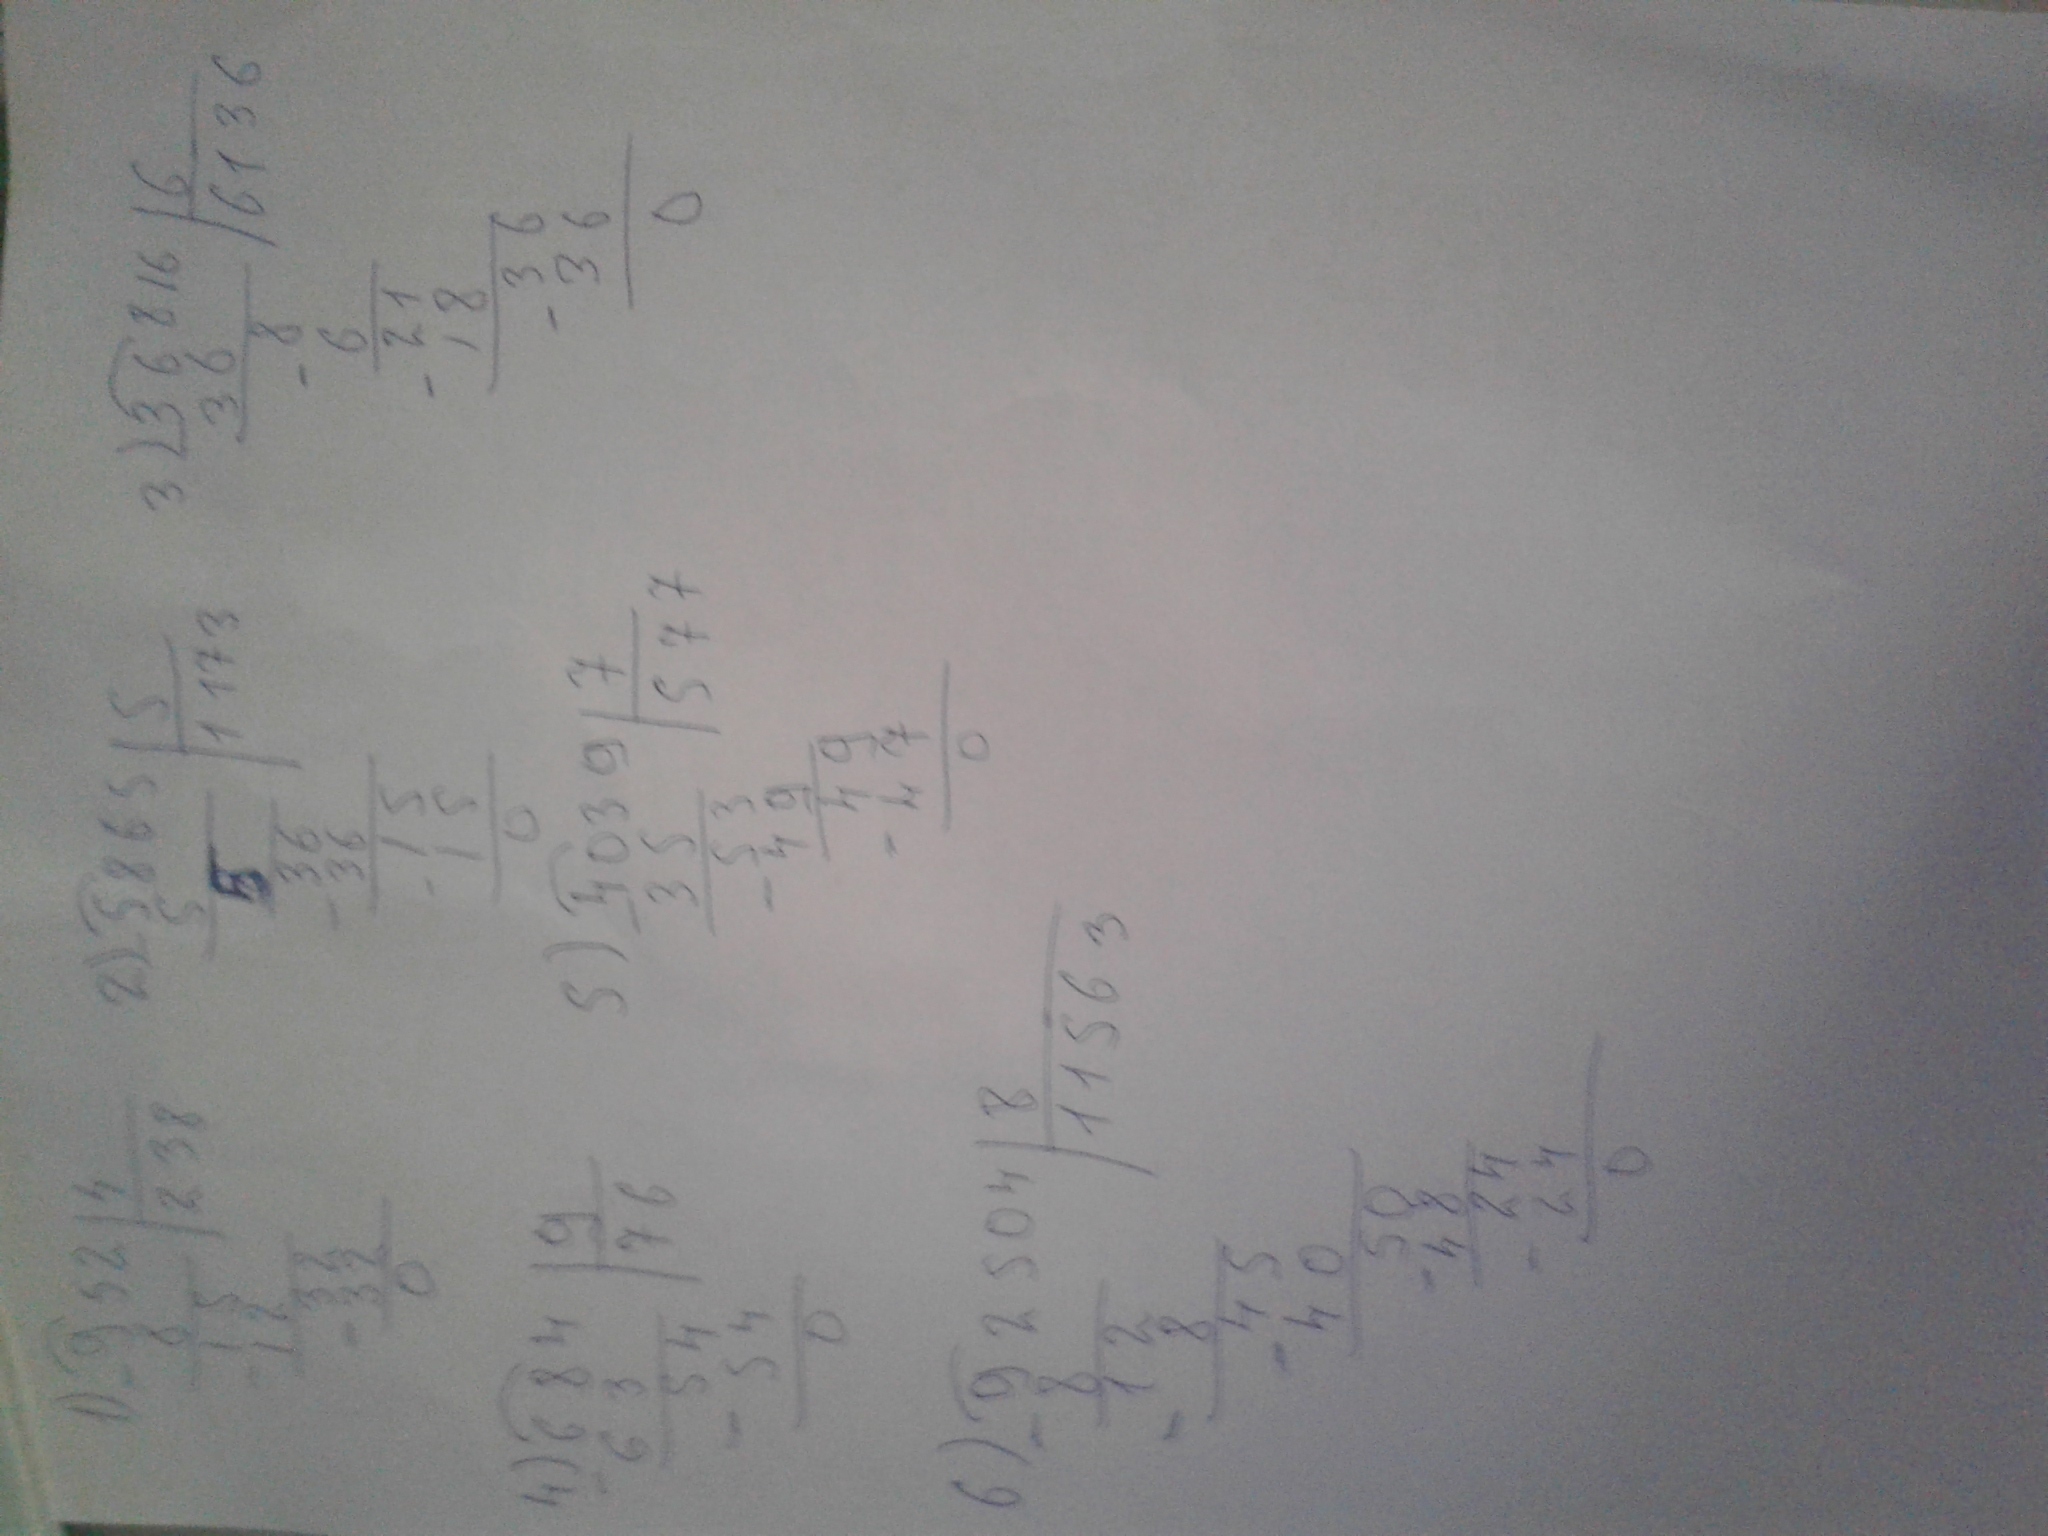 1) 952 | 4
- 8 | 238
15
- 12
32
- 32
0
2) 5865 | 5
5 | 1173
36
- 36
15
- 15
0
3) 36816 | 6
36 | 6136
8
- 6
21
- 18
36
- 36
0
4) 684 | 9
- 63 | 76
54
- 54
0
5) 4039 | 7
35 | 577
53
- 49
49
- 47
0
6) 92504 | 8
- 8 | 11563
12
- 8
45
- 40
50
- 48
24
- 24
0